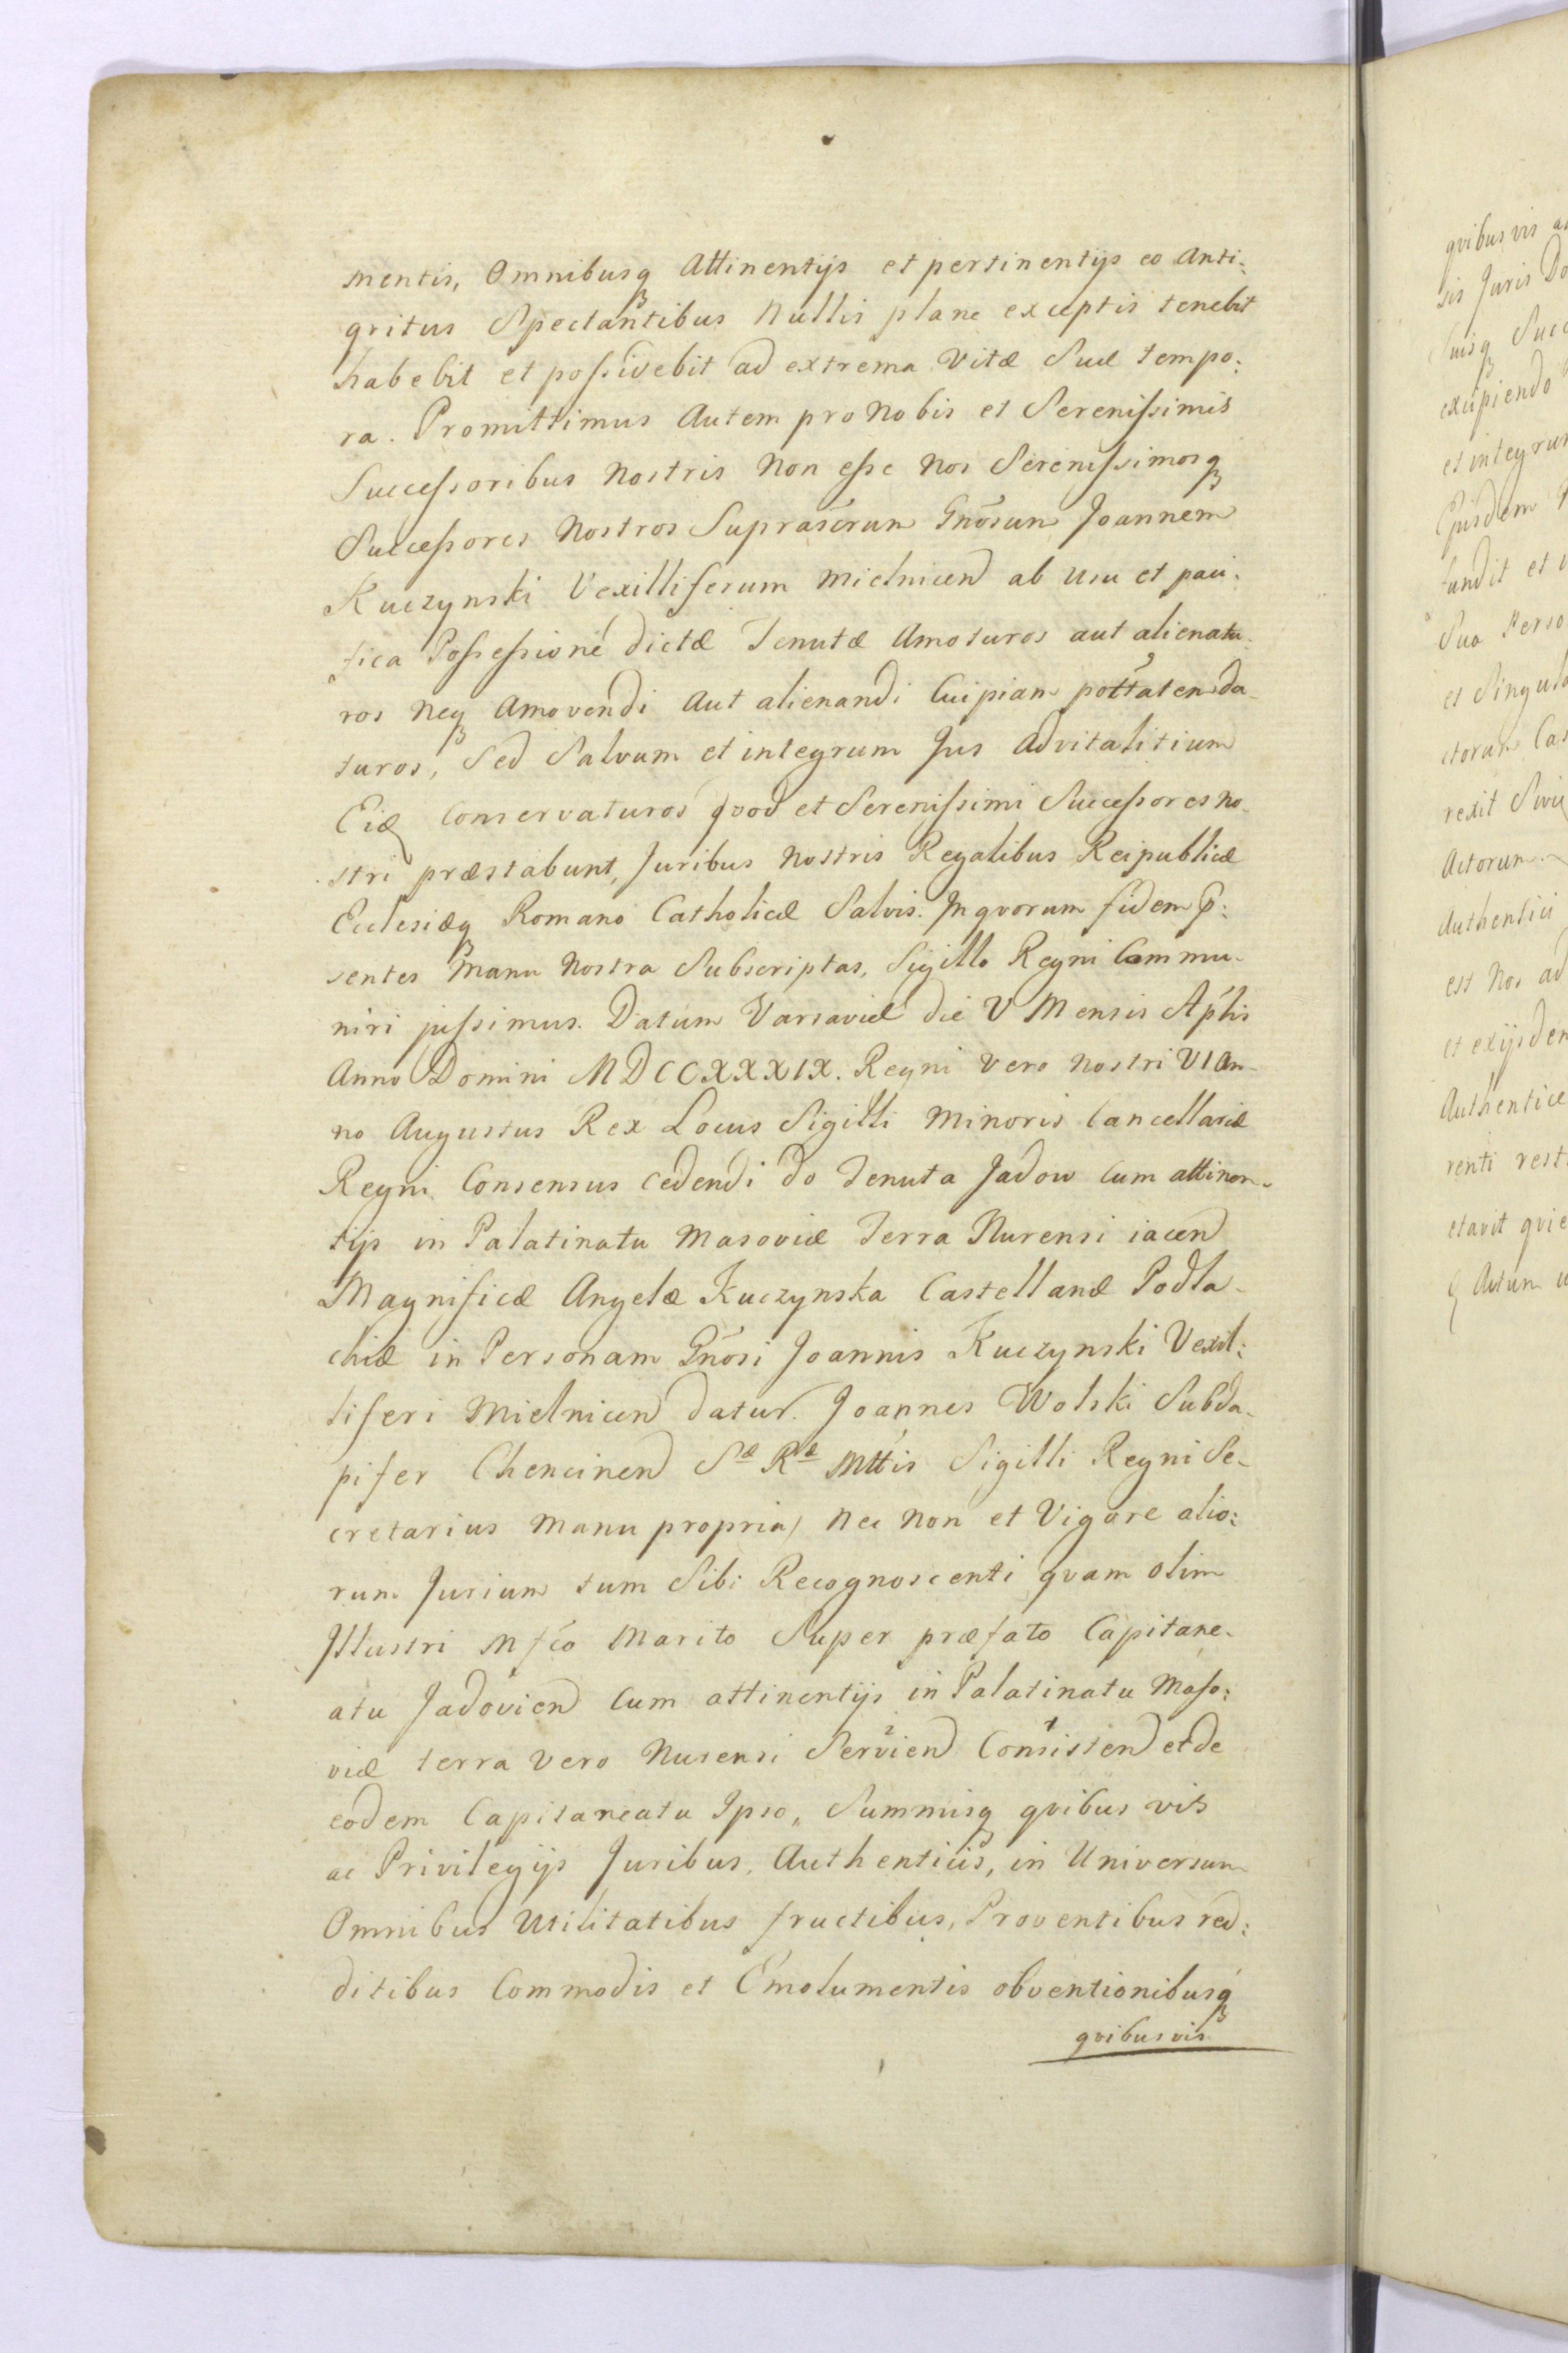 mentis, Omnibusq Attinentijs et pertinentijs eo Anti:
qvitus Spectantibus Nullis plane exceptis tenebit
habebit et possidebit ad extrema Vitæ Suæ tempo:
ra. Promittimus Autem pro Nobis et Serenissimis
Successoribus Nostris Non esse Nos Serenissimosq
Successores Nostros Suprascrum Gnosum Joannem
Kuczynski Vexilliferum Mielnicen ab Usu et paci:
fica Possessione dictæ Tenutæ Amoturos aut alienatu-
ros Neq Amovendi Aut alienandi Cuipiam pottatem da-
turos, Sed Salvum et integrum Jus Advitalitium
Eid Conservaturos Qvod et Serenissimi Successores no-
stri præstabunt, Juribus Nostris Regalibus Reipublicæ
Ecclesiæq Romano Catholicæ Salvis. In qvorum fidem p:
sentes Manu Nostra Subscriptas, Sigillo Regni Commu-
niri jussimus. Datum Varsaviæ die V Mensis Aplis
Anno Domini MDCCXXXIX. Regni Vero Nostri VI An-
no Augustus Rex Locus Sigilli Minoris Cancellariæ
Regni Consensus cedendi do Tenuta Jadow Cum attinen-
tijs in Palatinatu Masoviæ Terra Nurensi iacen
Magnificæ Angelæ Kuczynska Castellanæ Podla-
chiæ in Personam Gnosi Joannis Kuczynski Vexil:
liferi Mielnicen datur. Joannes Wolski Subda-
pifer Chencinen Sæ Ræ Mttis Sigilli Regni Se-
cretarius Manu propria, Nec Non et Vigore alio:
rum Jurium tum Sibi Recognoscenti qvam olim
Illustri Mfco Marito Super præfato Capitane-
atu Jadovien Cum attinentijs in Palatinatu Maso:
viæ terra Vero Nurensi Servien Consisten et de
eodem Capitaneatu Ipso, Summisq qvibus vis
ac Privilegijs Juribus, Authenticis, in Universum
Omnibus Utilitatibus fructibus, Proventibus red:
ditibus Commodis et Emolumentis obventionibusq
qvibusvis
qvibusvis
sis Juris
Suisq
excipiendo
et integrum
Ejusdem
fundit et
Sua
et
rexit
Actorum
Authentici
est Nos ad
et exijsdem
Authenticæ
renti
etavit
Actum